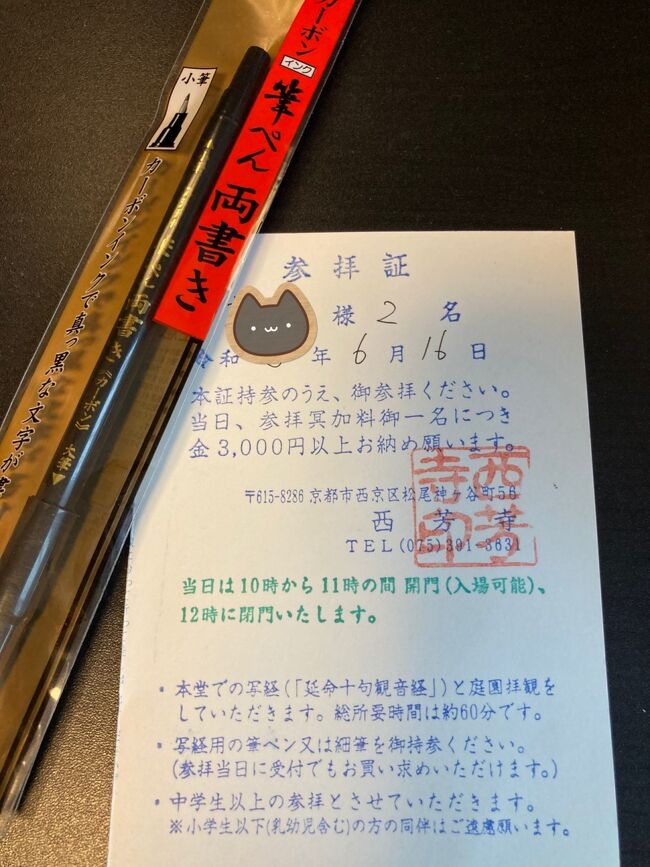 カーボン
インク
筆ぺん両書き
小筆
カーボンインクで真っ黒な文字が
両書き《カーボン》 太筆▼
参拝証
様 2 名
和 年 6 月 16 日
本証持参のうえ、御参拝ください。
当日、参拝冥加料御一名につき
金3,000円以上お納め願います。
〒615-8286 京都市西京区松尾神ヶ谷町56
西芳寺
TEL(075)391-3631
西芳寺印
当日は10時から11時の間 開門(入場可能)、
12時に閉門いたします。
・本堂での写経(「延命十句観音経」)と庭園拝観を
していただきます。総所要時間は約60分です。
・写経用の筆ペン又は細筆を御持参ください。
(参拝当日に受付でもお買い求めいただけます。)
・中学生以上の参拝とさせていただきます。
※小学生以下(乳幼児含む)の方の同伴はご遠慮願います。